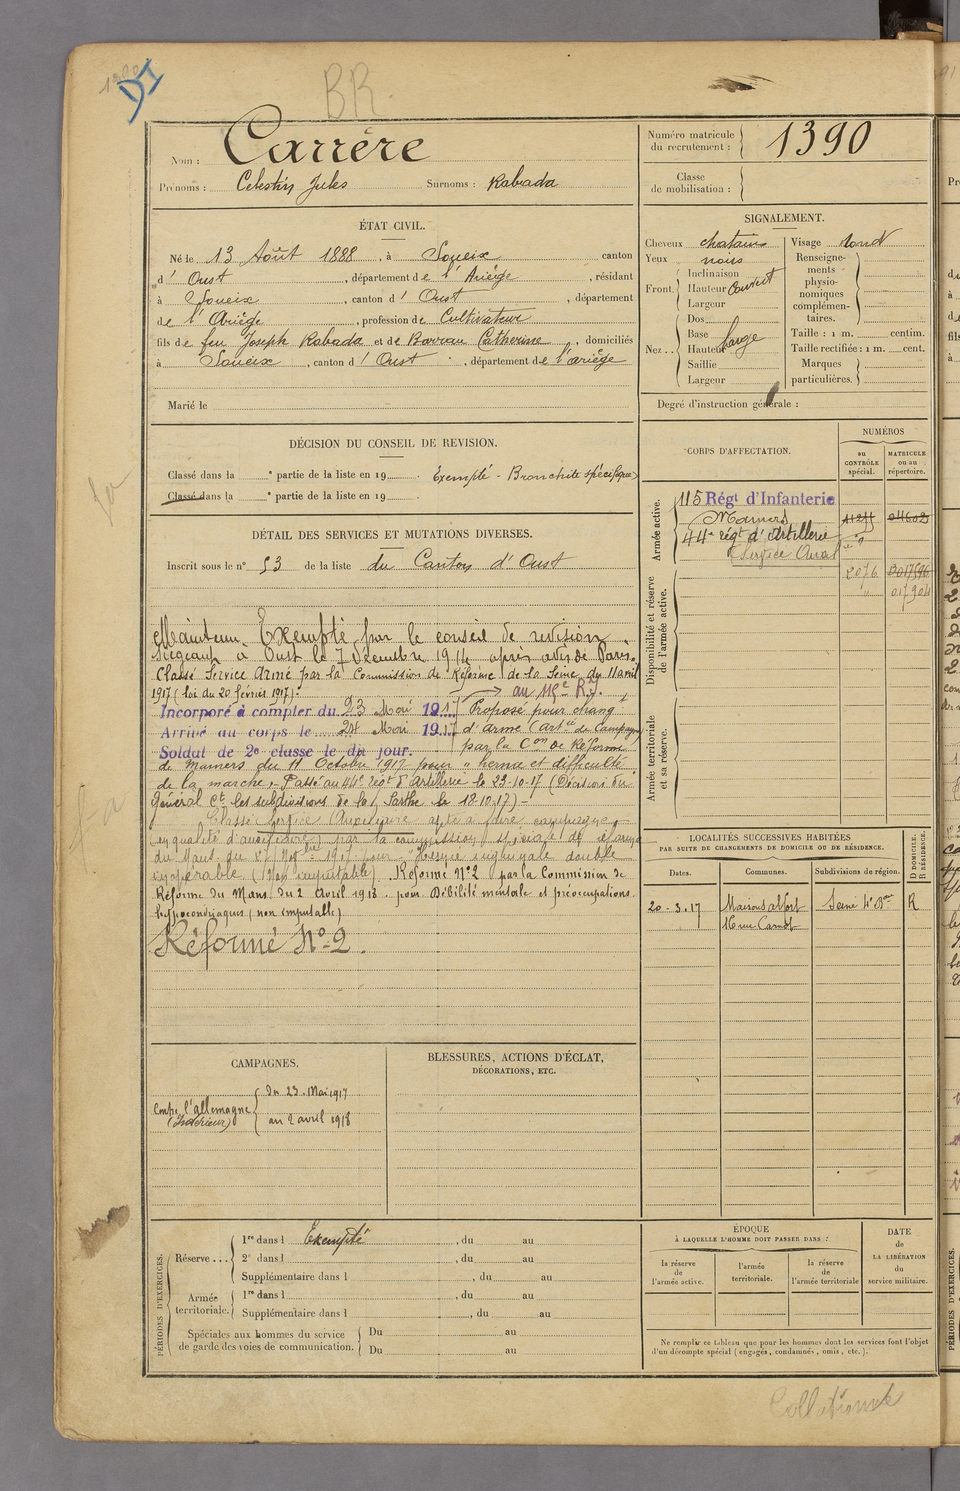 BR.
Nom : Carrère
Prénoms : Celestin Jules Surnoms : Rabada
Numéro matricule du recrutement : 1390
Classe de mobilisation :
ÉTAT CIVIL.
Né le 13 Août 1888, à Soueix canton
d'Oust, département de l'Ariège, résidant
à Soueix, canton d'Oust, département
de l'Ariège, profession de Cultivateur
fils de feu Joseph Rabada et de Barrau Catherine, domiciliés
à Soueix, canton d'Oust, département de l'Ariège
Marié le
SIGNALEMENT.
Cheveux chatain Visage rond
Yeux noirs
Renseignements physionomiques complémentaires.
Front. Inclinaison
Hauteur Couvert
Largeur
Nez .. Dos
Base large
Hauteur
Saillie
Largeur
Taille : 1 m. centim.
Taille rectifiée : 1 m. cent.
Marques particulières.
Degré d'instruction générale :
DÉCISION DU CONSEIL DE REVISION.
Classé dans la e partie de la liste en 19 . Exempté - Bronchite spécifique
Classé dans la e partie de la liste en 19 .
DÉTAIL DES SERVICES ET MUTATIONS DIVERSES.
Inscrit sous le n° 53 de la liste du Canton d'Oust
Maintenu Exempté par le conseil de revision
siégeant à Oust le 7 décembre 1914 après avis de Paris.
Classé Service Armé par la Commission de Réforme de la Seine du 11 avril
1917 (loi du 20 février 1917).
au 115e R.I.
Incorporé à compter du 23 Mai 1917
Arrivé au corps le 24 Mai 1917
Soldat de 2e classe le dit jour.
Proposé pour chang t
d'arme (Art ie de Campagne)
par la Con de Réforme
de Mamers du 11 Octobre 1917 pour " hernie et difficulté
de la marche ". Passé au 44e régt d'Artillerie le 23-10-17 (Décision du
Général Ct les subdivisions de la Sarthe le 18.10.17)-
Classé Service Auxiliaire apte à faire campagne
en qualité d'auxiliaire) par la commission spéciale de réforme
du Mans du 27 Nov bre 1917 pour Hernie inguinale double
inopérable (Non imputable). Réformé N°2 par la Commission de
Réforme du Mans du 2 Avril 1918 pour Débilité mentale et préoccupations
hypocondriaques (non imputable)
Réformé N°2.
CORPS D'AFFECTATION.
NUMÉROS
au CONTRÔLE spécial.
MATRICULE ou au répertoire.
Armée active.
115 Régt d'Infanterie
Mamers 04602
44e régt d'Artillerie
Service Auxil
2076
017904
Disponibilité et réserve de l'armée active.
Armée territoriale et sa réserve.
LOCALITÉS SUCCESSIVES HABITÉES
PAR SUITE DE CHANGEMENTS DE DOMICILE OU DE RÉSIDENCE.
Dates. Communes. Subdivisions de région. D DOMICILE. R RÉSIDENCE.
20-3.17 Maisons alfort Seine 4e Bau R
16 rue Carnot
CAMPAGNES.
Contre l'allemagne
(Intérieur)
du 23. Mai 1917
au 2 avril 1918
BLESSURES, ACTIONS D'ÉCLAT,
DÉCORATIONS, ETC.
PÉRIODES D'EXERCICES.
Réserve ... 1re dans l Exempté , du au
2e dans l , du au
Supplémentaire dans l , du au
Armée territoriale. 1re dans l , du au
Supplémentaire dans l , du au
Spéciales aux hommes du service de garde des voies de communication. Du au
Du au
ÉPOQUE
À LAQUELLE L'HOMME DOIT PASSER DANS :
la réserve de l'armée active.
l'armée territoriale.
la réserve de l'armée territoriale
DATE de LA LIBÉRATION du service militaire.
Ne remplir ce tableau que pour les hommes dont les services font l'objet
d'un décompte spécial (engagés, condamnés, omis, etc.).
Collationné